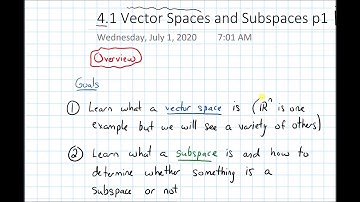 4.1 Vector Spaces and Subspaces p1
Wednesday, July 1, 2020 7:01 AM
Overview
Goals
① Learn what a vector space is (ℝⁿ is one
example but we will see a variety of others)
② Learn what a subspace is and how to
determine whether something is a
subspace or not